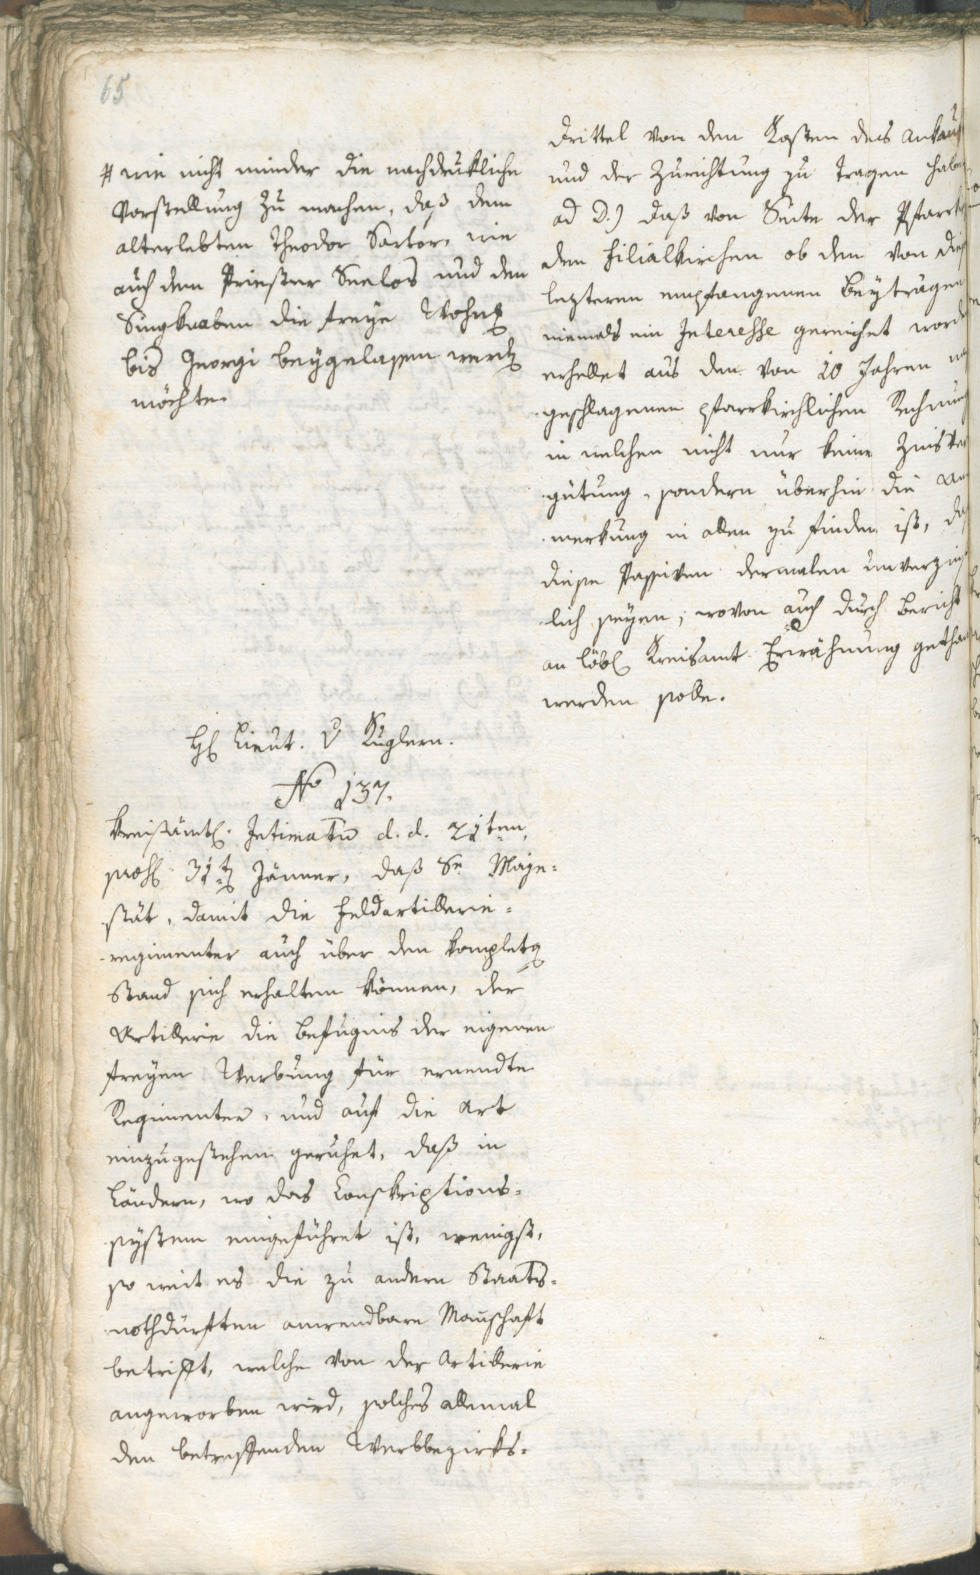 65
# wie nicht minder die nachdrukliche
Vorstellung zu machen, daß dem
alterlebten Theodor Sartor, wie
auch dem Priester Seelos und den
Singknaben die freye Wohng
bis Georgi beygelassen werdn
möchte.
Hl Lieut. v Kuglern.
No 137.
Kreisämtl. Intimatum d. d. 21ten,
präs 31t Jänner, daß Se Maje-
stät, damit die Feldartillerie-
regimenter auch über den kompletn
Stand sich erhalten können, der
Artillerie die Befugnis der eigenen
freyen Werbung für ernendte
Regimenter, und auf die Art
einzugestehen geruhet, daß in
Ländern, wo das Conskriptions-
system eingeführet ist, wenigst,
so weit es die zu andern Staats-
nothdürften anwendbare Manschaft
betrifft, welche von der Artillerie
angeworben wird, solches allemal
den betreffenden Werbbezirks-
Drittel von den Kosten des Ankauf
und der Zurichtung zu tragen haben
ad D.) daß von Seite der Pfarrk
den Filialkirchen ob den von dies
lezteren empfangenen Beyträgen
niemals ein Interesse gereichet word
erhellet aus den von 20 Jahren
geschlagenen pfarrkirchlichen Rechnung
in welchen nicht nur keine Zinsver
gütung, sondern überhin die An
merkung in allen zu finden ist, daß
diese Passiven dermalen unverzins
lich seyen; wovon auch durch Bericht
an löbl Kreisamt Erwähnung gethan
werden solle.